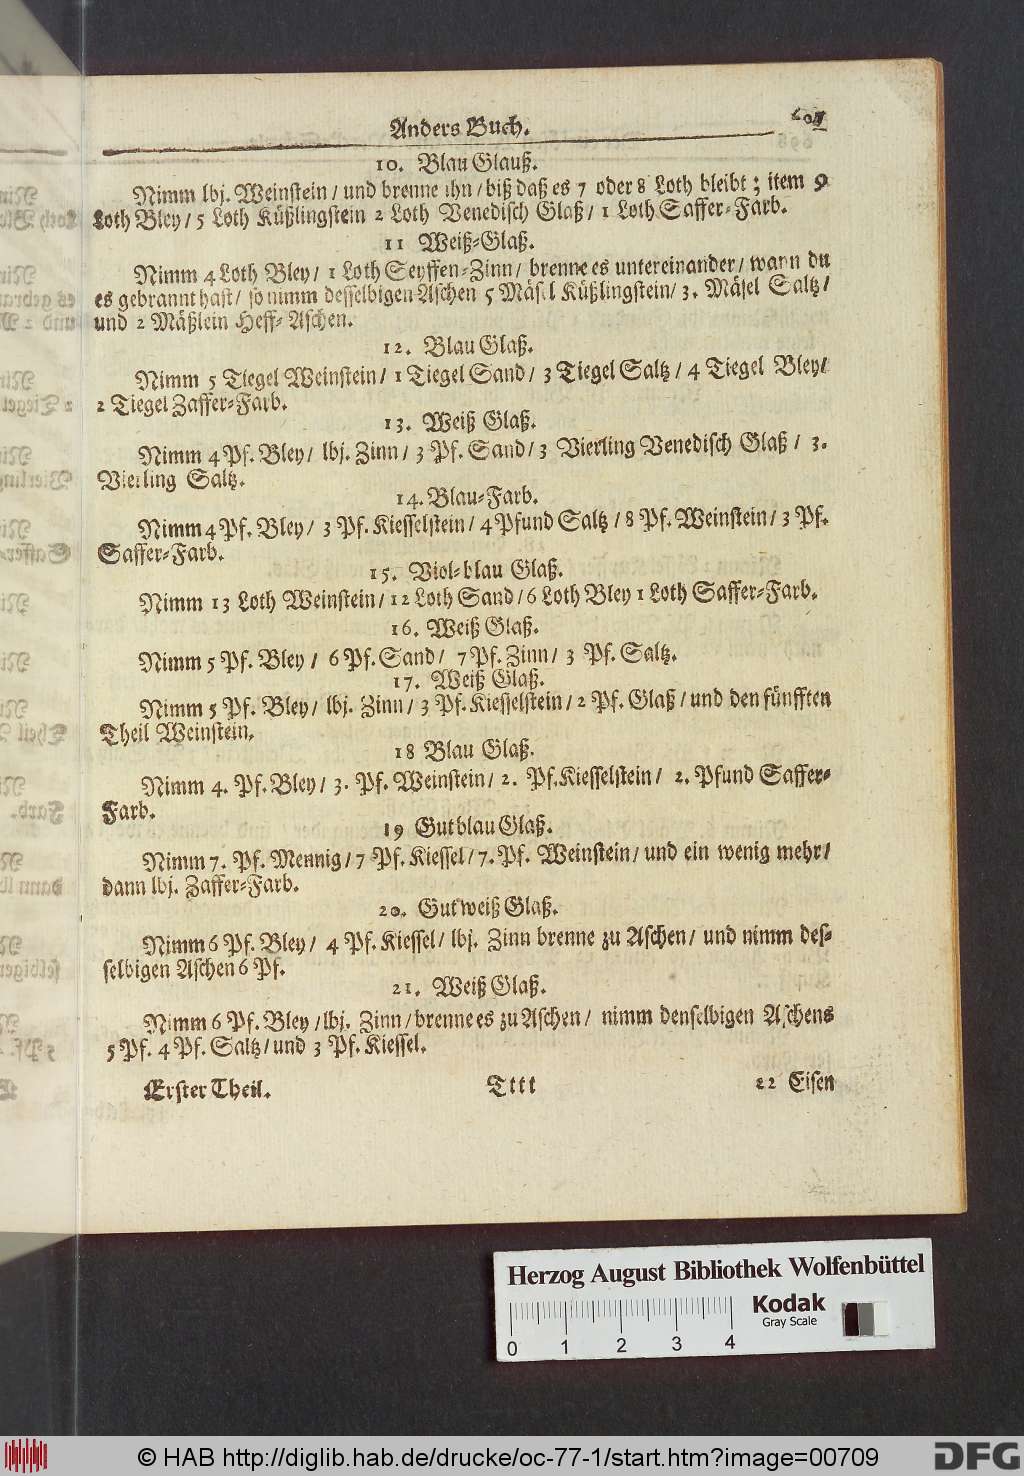 Anders Buch.
10. Blau Glauß.
Nimm lbj. Weinstein / und brenne ihn / biß daß es 7 oder 8 Loth bleibt; item 9
Loth Bley / 5 Loth Küßlingstein 2 Loth Venedisch Glaß / 1 Loth Saffer-Farb.
11 Weiß-Glaß.
Nimm 4 Loth Bley / 1 Loth Seyffen-Zinn / brenne es untereinander / wann du
es gebrannt hast / so nimm desselbigen Aschen 5 Mäsel Küßlingstein / 3. Mäsel Saltz /
und 2 Mäßlein Heff-Aschen.
12. Blau Glaß.
Nimm 5 Tiegel Weinstein / 1 Tiegel Sand / 3 Tiegel Saltz / 4 Tiegel Bley /
2 Tiegel Zaffer-Farb.
13. Weiß Glaß.
Nimm 4 Pf. Bley / lbj. Zinn / 3 Pf. Sand / 3 Vierling Venedisch Glaß / 3.
Vierling Saltz.
14. Blau-Farb.
Nimm 4 Pf. Bley / 3 Pf. Kiesselstein / 4 Pfund Saltz / 8 Pf. Weinstein / 3 Pf.
Saffer-Farb.
15. Viol-blau Glaß.
Nimm 13 Loth Weinstein / 12 Loth Sand / 6 Loth Bley 1 Loth Saffer-Farb.
16. Weiß Glaß.
Nimm 5 Pf. Bley / 6 Pf. Sand / 7 Pf. Zinn / 3 Pf. Saltz.
17. Weiß Glaß.
Nimm 5 Pf. Bley / lbj. Zinn / 3 Pf. Kiesselstein / 2 Pf. Glaß / und den fünfften
Theil Weinstein.
18 Blau Glaß.
Nimm 4. Pf. Bley / 3. Pf. Weinstein / 2. Pf. Kiesselstein / 2. Pfund Saffer-
Farb.
19 Gut blau Glaß.
Nimm 7. Pf. Mennig / 7 Pf. Kiessel / 7. Pf. Weinstein / und ein wenig mehr /
dann lbj. Zaffer-Farb.
20. Gut weiß Glaß.
Nimm 6 Pf. Bley / 4 Pf. Kiessel / lbj. Zinn brenne zu Aschen / und nimm des-
selbigen Aschen 6 Pf.
21. Weiß Glaß.
Nimm 6 Pf. Bley / lbj. Zinn / brenne es zu Aschen / nimm denselbigen Aschens
5 Pf. 4 Pf. Saltz / und 3 Pf. Kiessel.
Erster Theil. Tttt 22 Eisen
Herzog August Bibliothek Wolfenbüttel
Kodak
Gray Scale
0 1 2 3 4
© HAB http://diglib.hab.de/drucke/oc-77-1/start.htm?image=00709
DFG